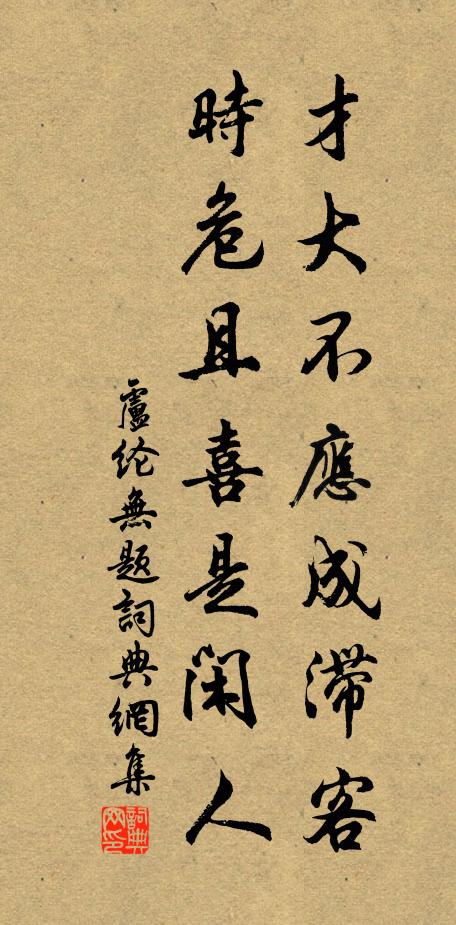 才大不應成滯客
時危且喜是閑人
盧纶無題詞典網集
詞典網印